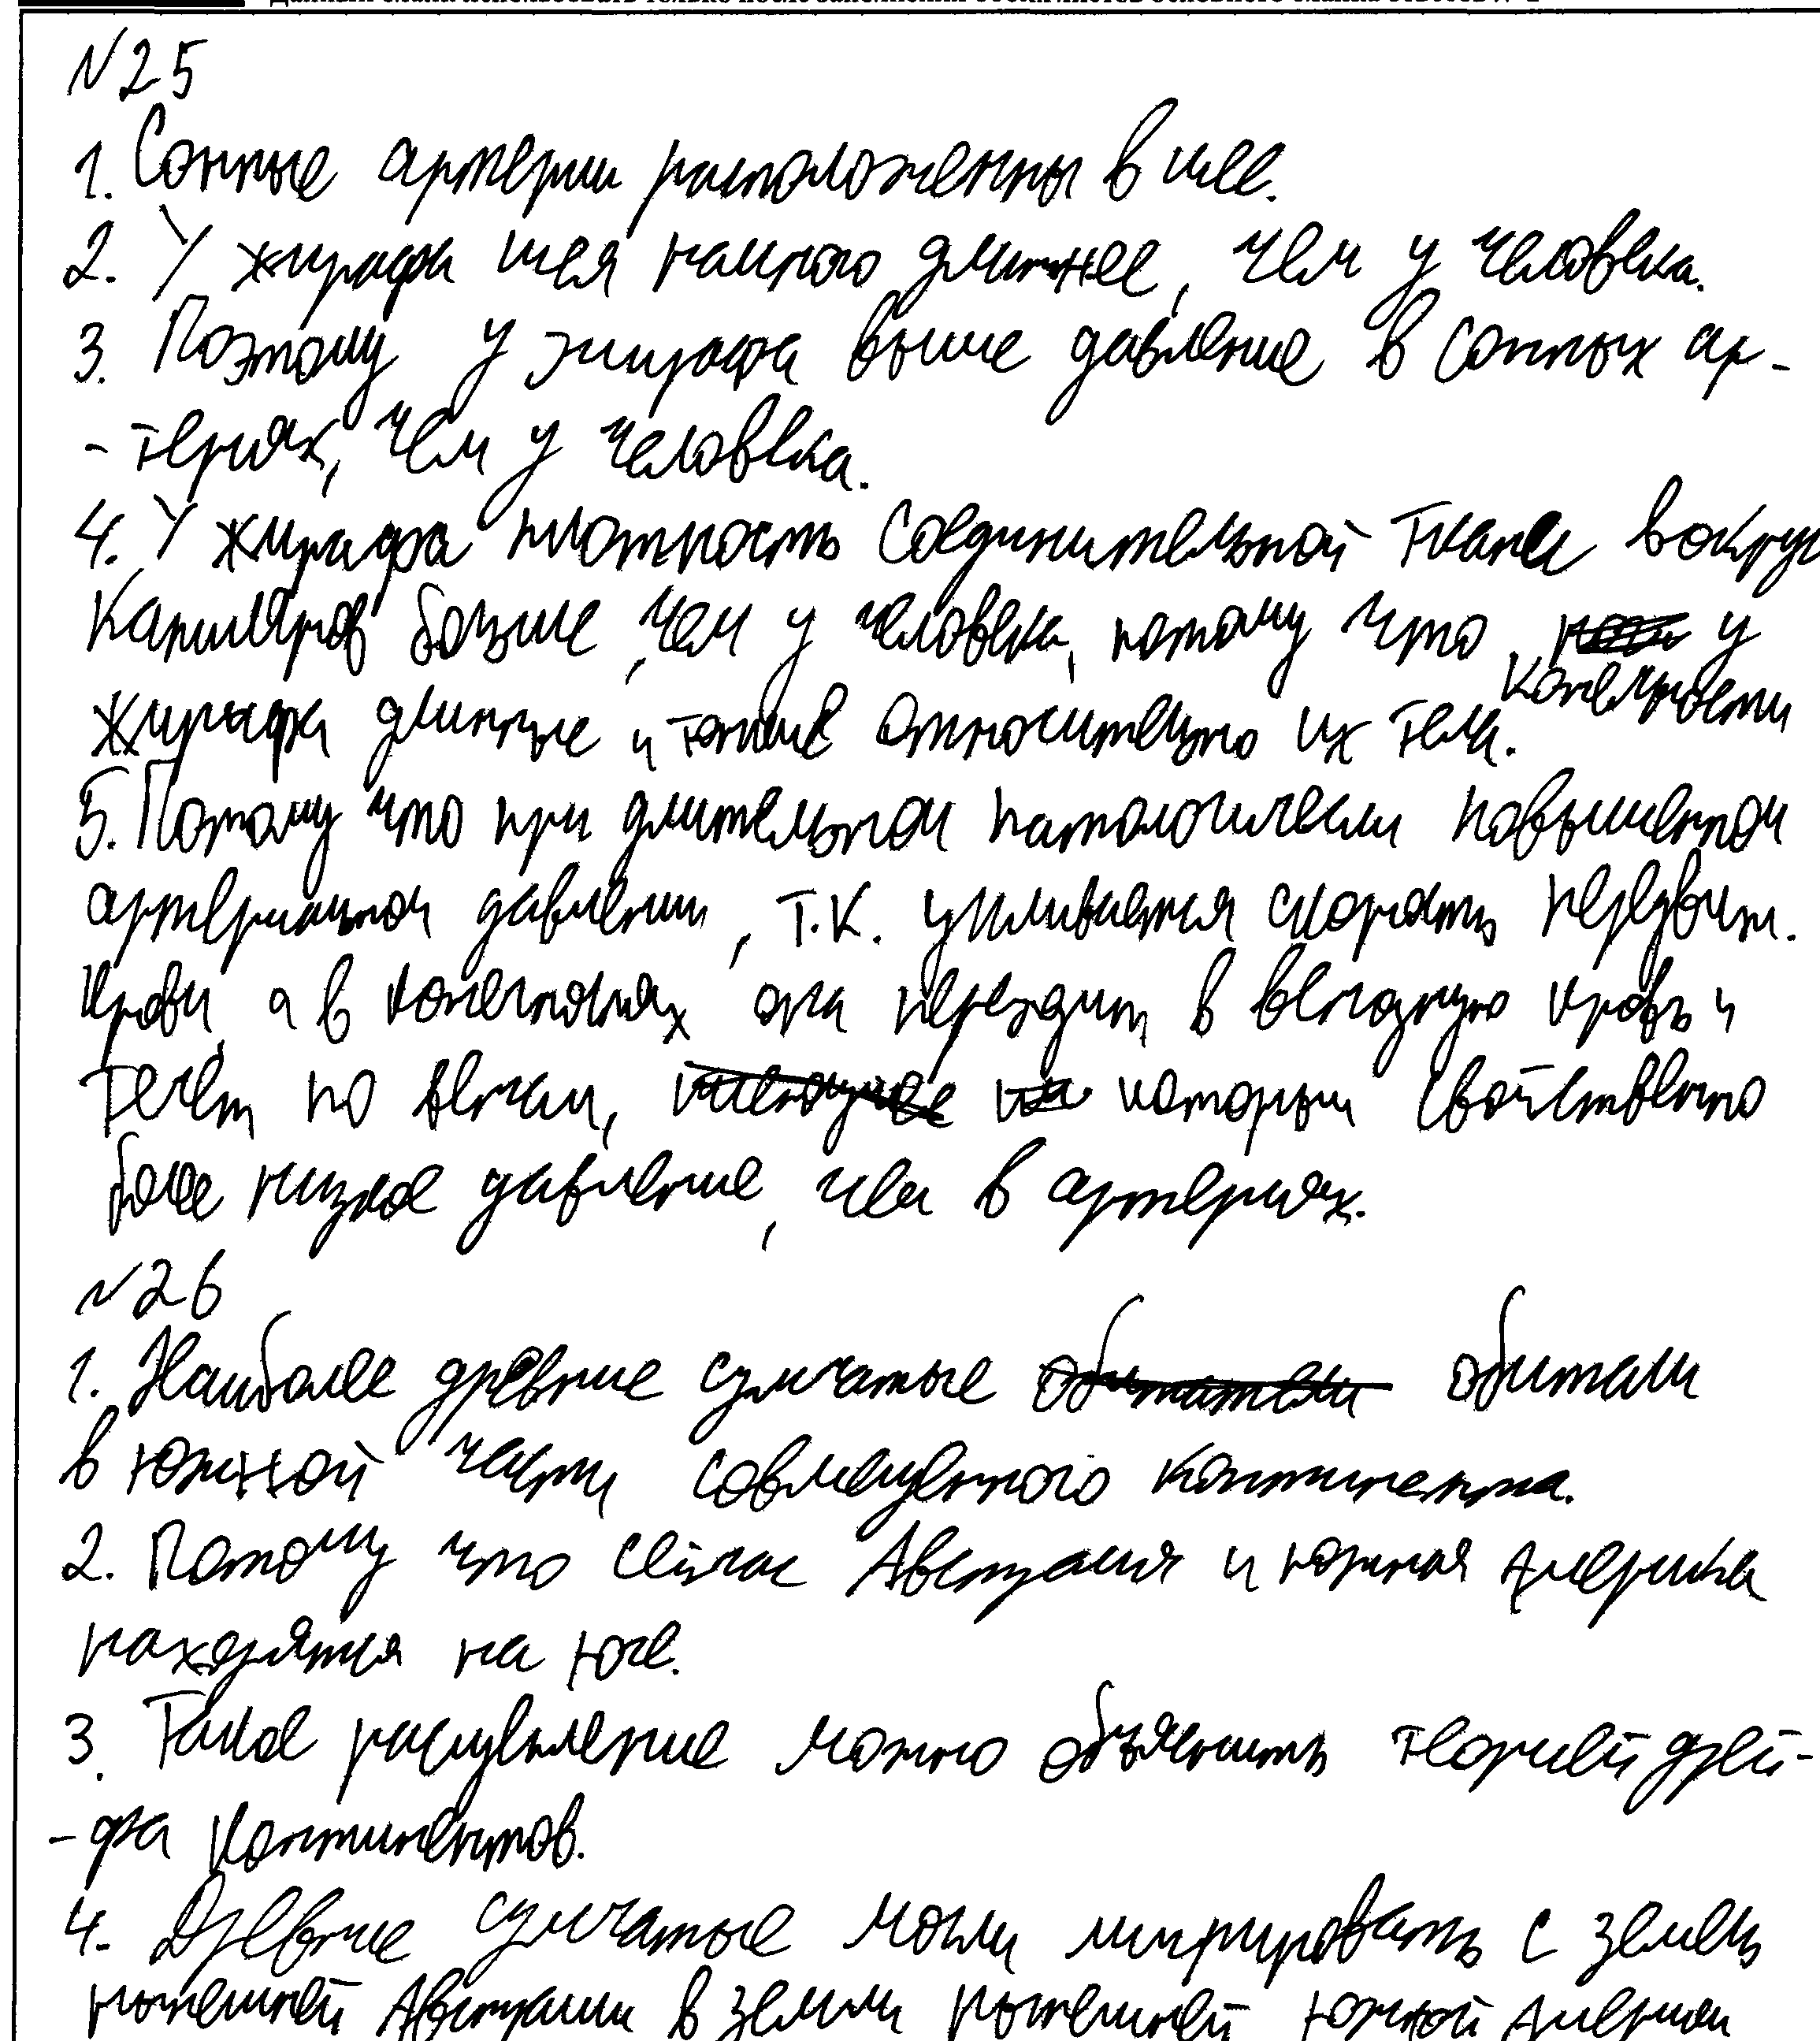 №25
1. Сонные артерии расположенны в шее.
2. У жирафа шея намного длиннее, чем у человека.
3. Поэтому у жирафа выше давление в сонных ар-
-териях, чем у человека.
4. У жирафа плотность соединительной ткани вокруг
капиляров больше, чем у человека, потому что у
жирафа длинные и тонкие конечности относительно их тела.
5. Потому что при длительном патологичеки повышенном
артериальном давлении, т.к. усиливается скорость передвиж.
крови, а в конечностях она переходит в венозную кровь и
течет по венам, которым свойственно
более низкое давление, чем в артериях.
№26
1. Наиболее древние сумчатые обитали
в южной части совмещенного континента.
2. Потому что сейчас Австралия и южная Америка
находятся на юге.
3. Такое расщепление можно объяснить теорией дрей-
-фа континентов.
4. Древние сумчатые могли мигрировать с земель
нынешней Австралии в земли нынешней южной Америки